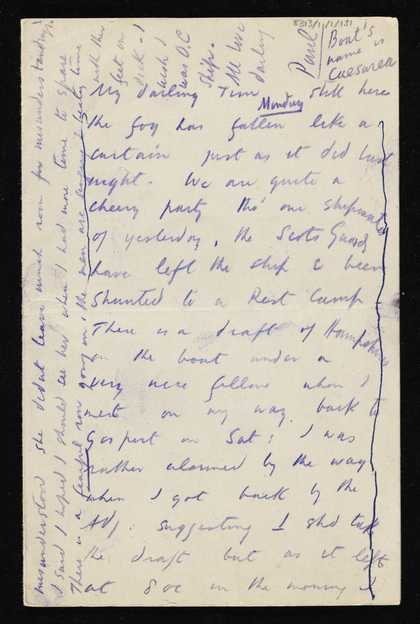 My Darling Tim Monday Still here
the fog has fallen like a
curtain just as it did last
night. We are quite a
cheery party tho' our shipmates
of yesterday, the Scots Guards
have left the ship & been
shunted to a Rest Camp
There is a draft of Hampshires
on the boat under a
very nice fellow whom I
met on my way back to
Gosport on Sat: I was
rather alarmed by the way
when I got back by the
Adj: suggesting I shd take
the draft but as it left
at 8 oc in the morning I
misunderstood she didn't leave much room for misunderstanding.
I said I hoped I should see her when I had more time to spare
There is a fearful row going on, the men are having
with their
feet on
deck. I
wish I
was O.C
Ship.
All love
darling
Paul
Boat's
name is
Caesarea